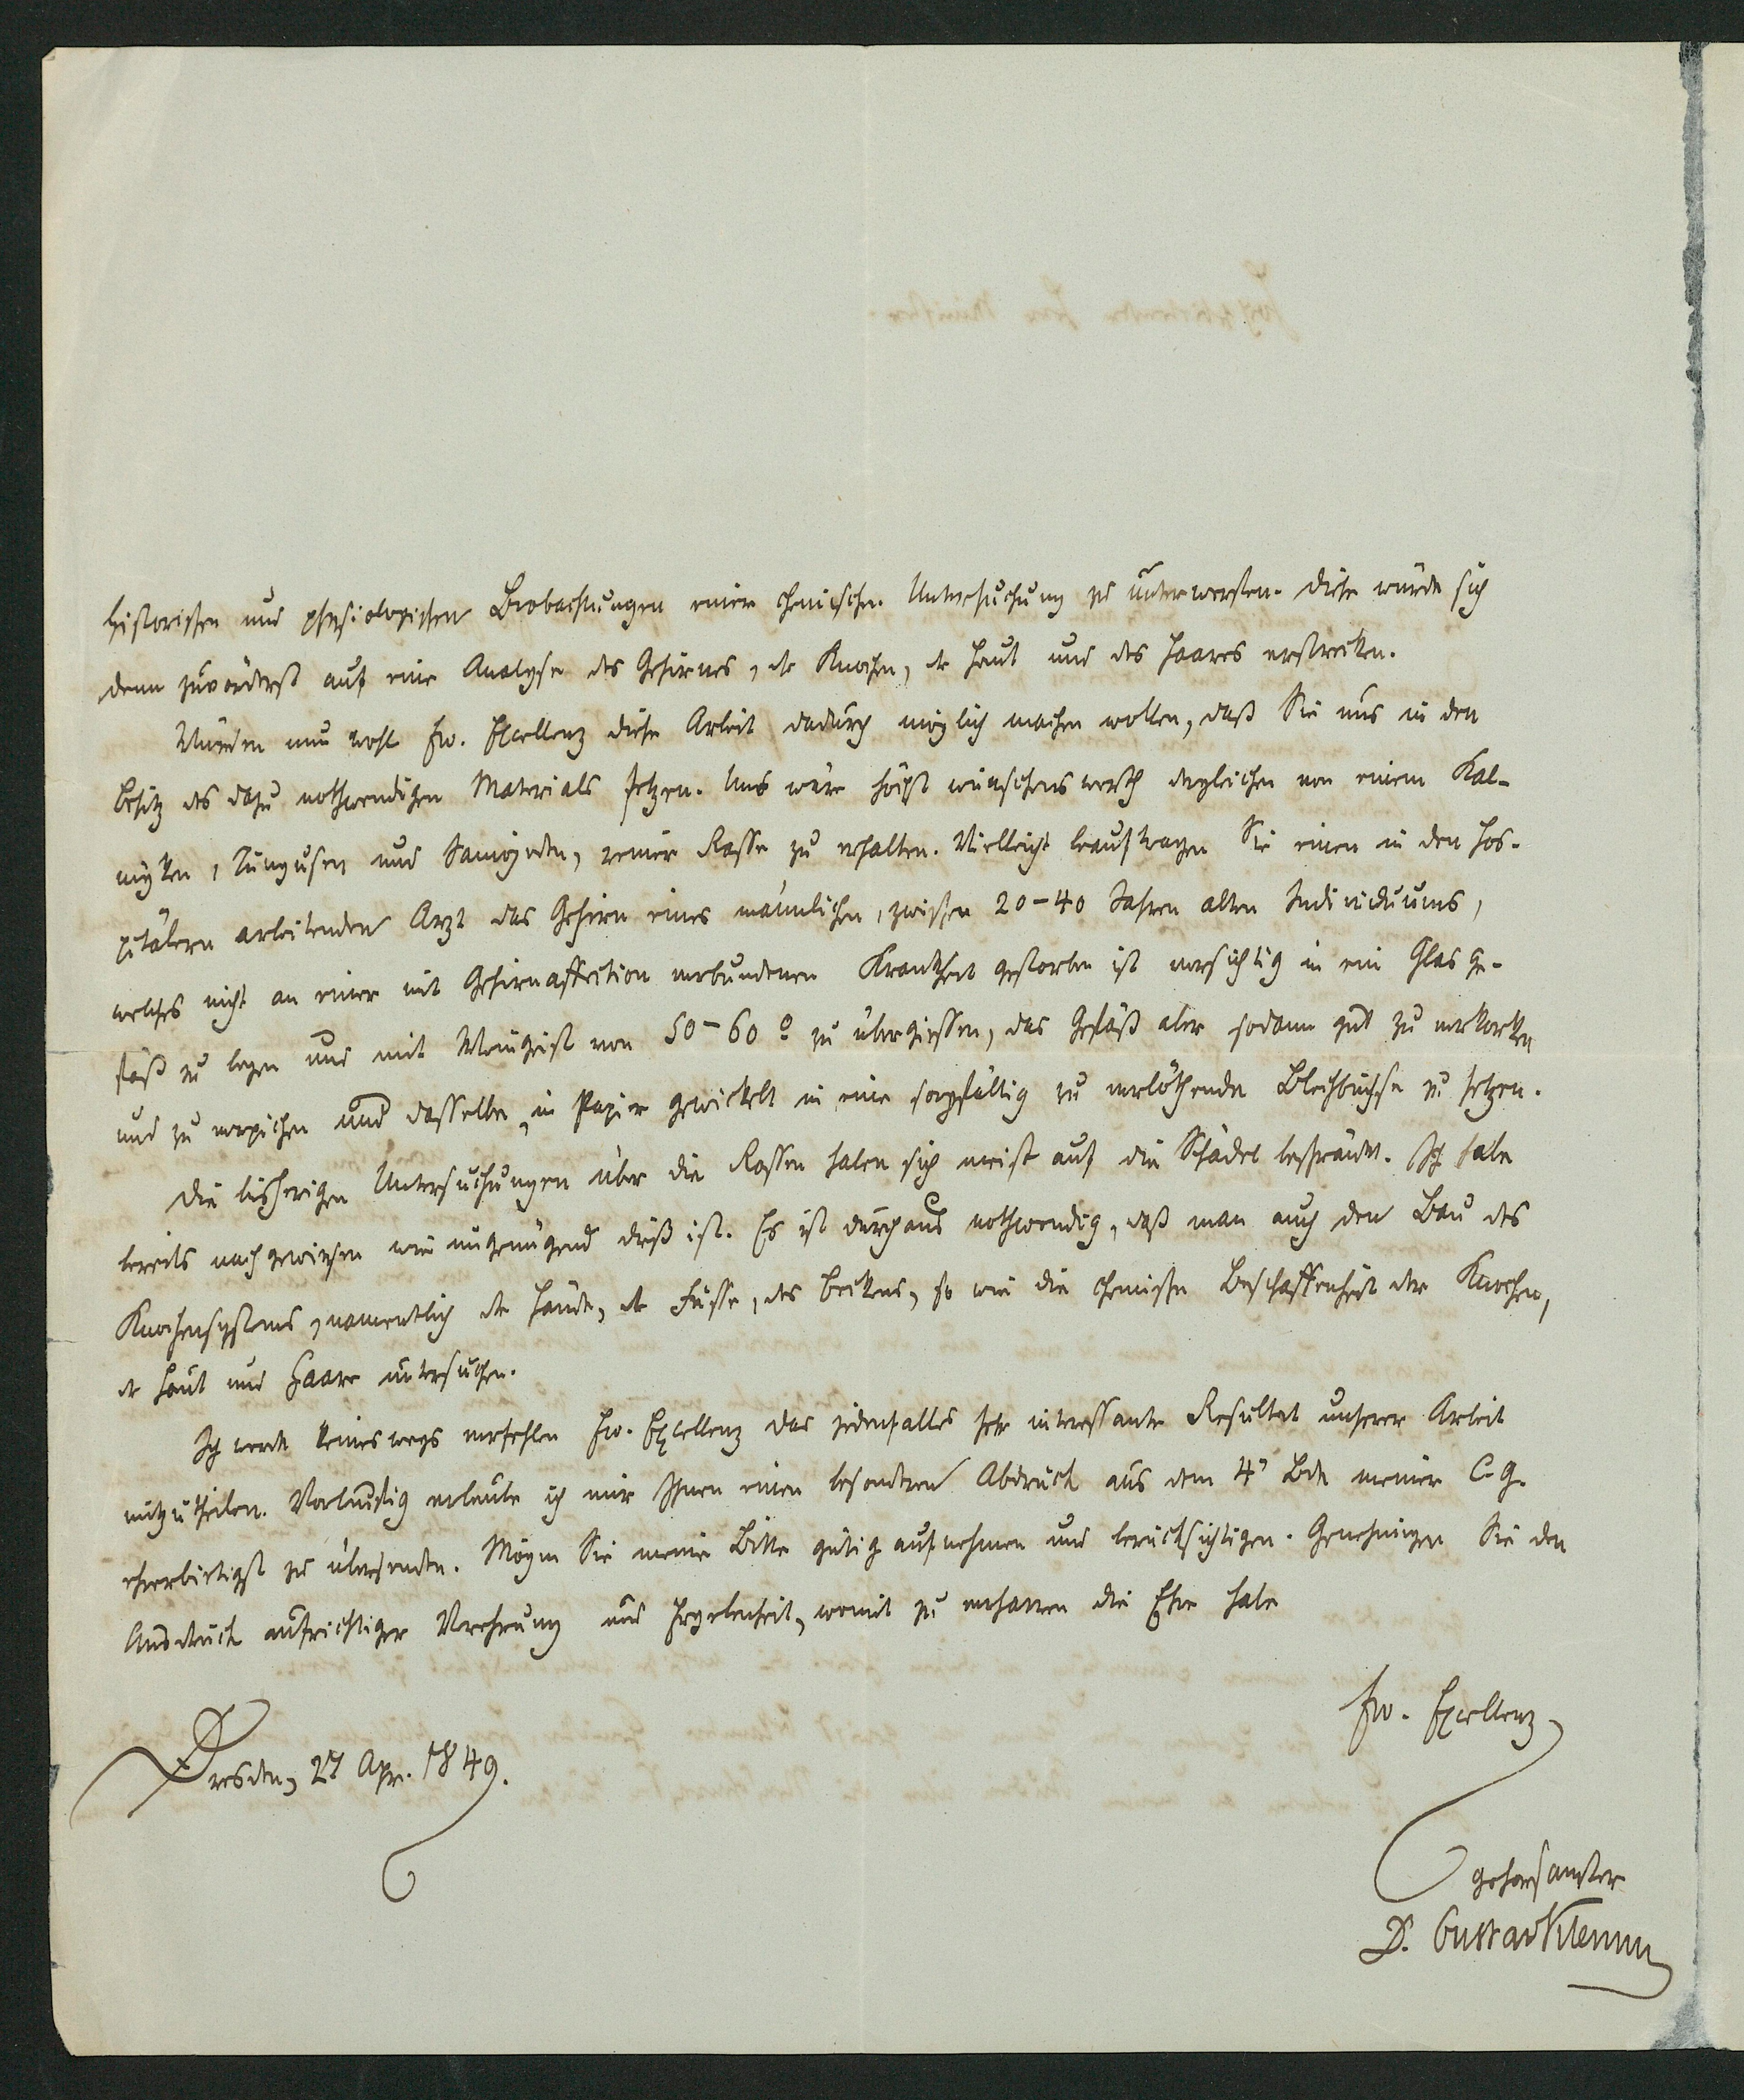 historischen und physiologischen Beobachtungen einer chemischen Untersuchung zu unterwerfen. Diese würde sich
denn zuvörderst auf eine Analyse des Gehirnes, der Knochen, der Haut und des Haares erstrecken.
Würden nun wohl Ew. Excellenz diese Arbeit dadurch möglich machen wollen, daß Sie uns in den
Besitz des dazu nothwendigen Materials setzen. Uns wäre höchst wünschenswerth dergleichen von einem Kal-
myken, Tungusen und Samojeden, reiner Rasse zu erhalten. Vielleicht beauftragen Sie einen in den Hos-
pitälern arbeitenden Arzt das Gehirn eines männlichen, zwischen 20-40 Jahren alten Individuums,
welches nicht an einer mit Gehirnaffection verbundenen Krankheit gestorben ist vorsichtig in ein Glas ge-
fäß zu legen und mit Weingeist von 50-60° zu übergiessen, das Gefäß aber sodann gut zu verkorken
und zu verpichen und dasselbe, in Papier gewickelt in eine sorgfältig zu verlöthende Blechbüchse zu setzen.
Die bisherigen Untersuchungen über die Rassen haben sich meist auf die Schädel beschränkt. Ich habe
bereits nachgewiesen wie ungenügend dieß ist. Es ist durchaus nothwendig, daß man auch den Bau des
Knochensystems, namentlich der Hände, der Füsse, des Beckens, so wie die chemische Beschaffenheit der Knochen,
der Haut und Haare untersuche.
Ich werde keineswegs verfehlen Ew. Excellenz das jedenfalls sehr interessante Resultat unserer Arbeit
mitzutheilen. Vorläufig erlaube ich mir Ihnen einen besonderen Abdruck aus dem 4n Bde meiner C.G.
ehrerbietigst zu übersenden. Mögen Sie meine Bitte gütig aufnehmen und berücksichtigen. Genehmigen Sie den
Ausdruck aufrichtiger Verehrung und Ergebenheit, womit zu verharren die Ehre habe
Ew. Excellenz
Dresden, 27 Apr. 1849.
gehorsamster
D. Gustav Klemm